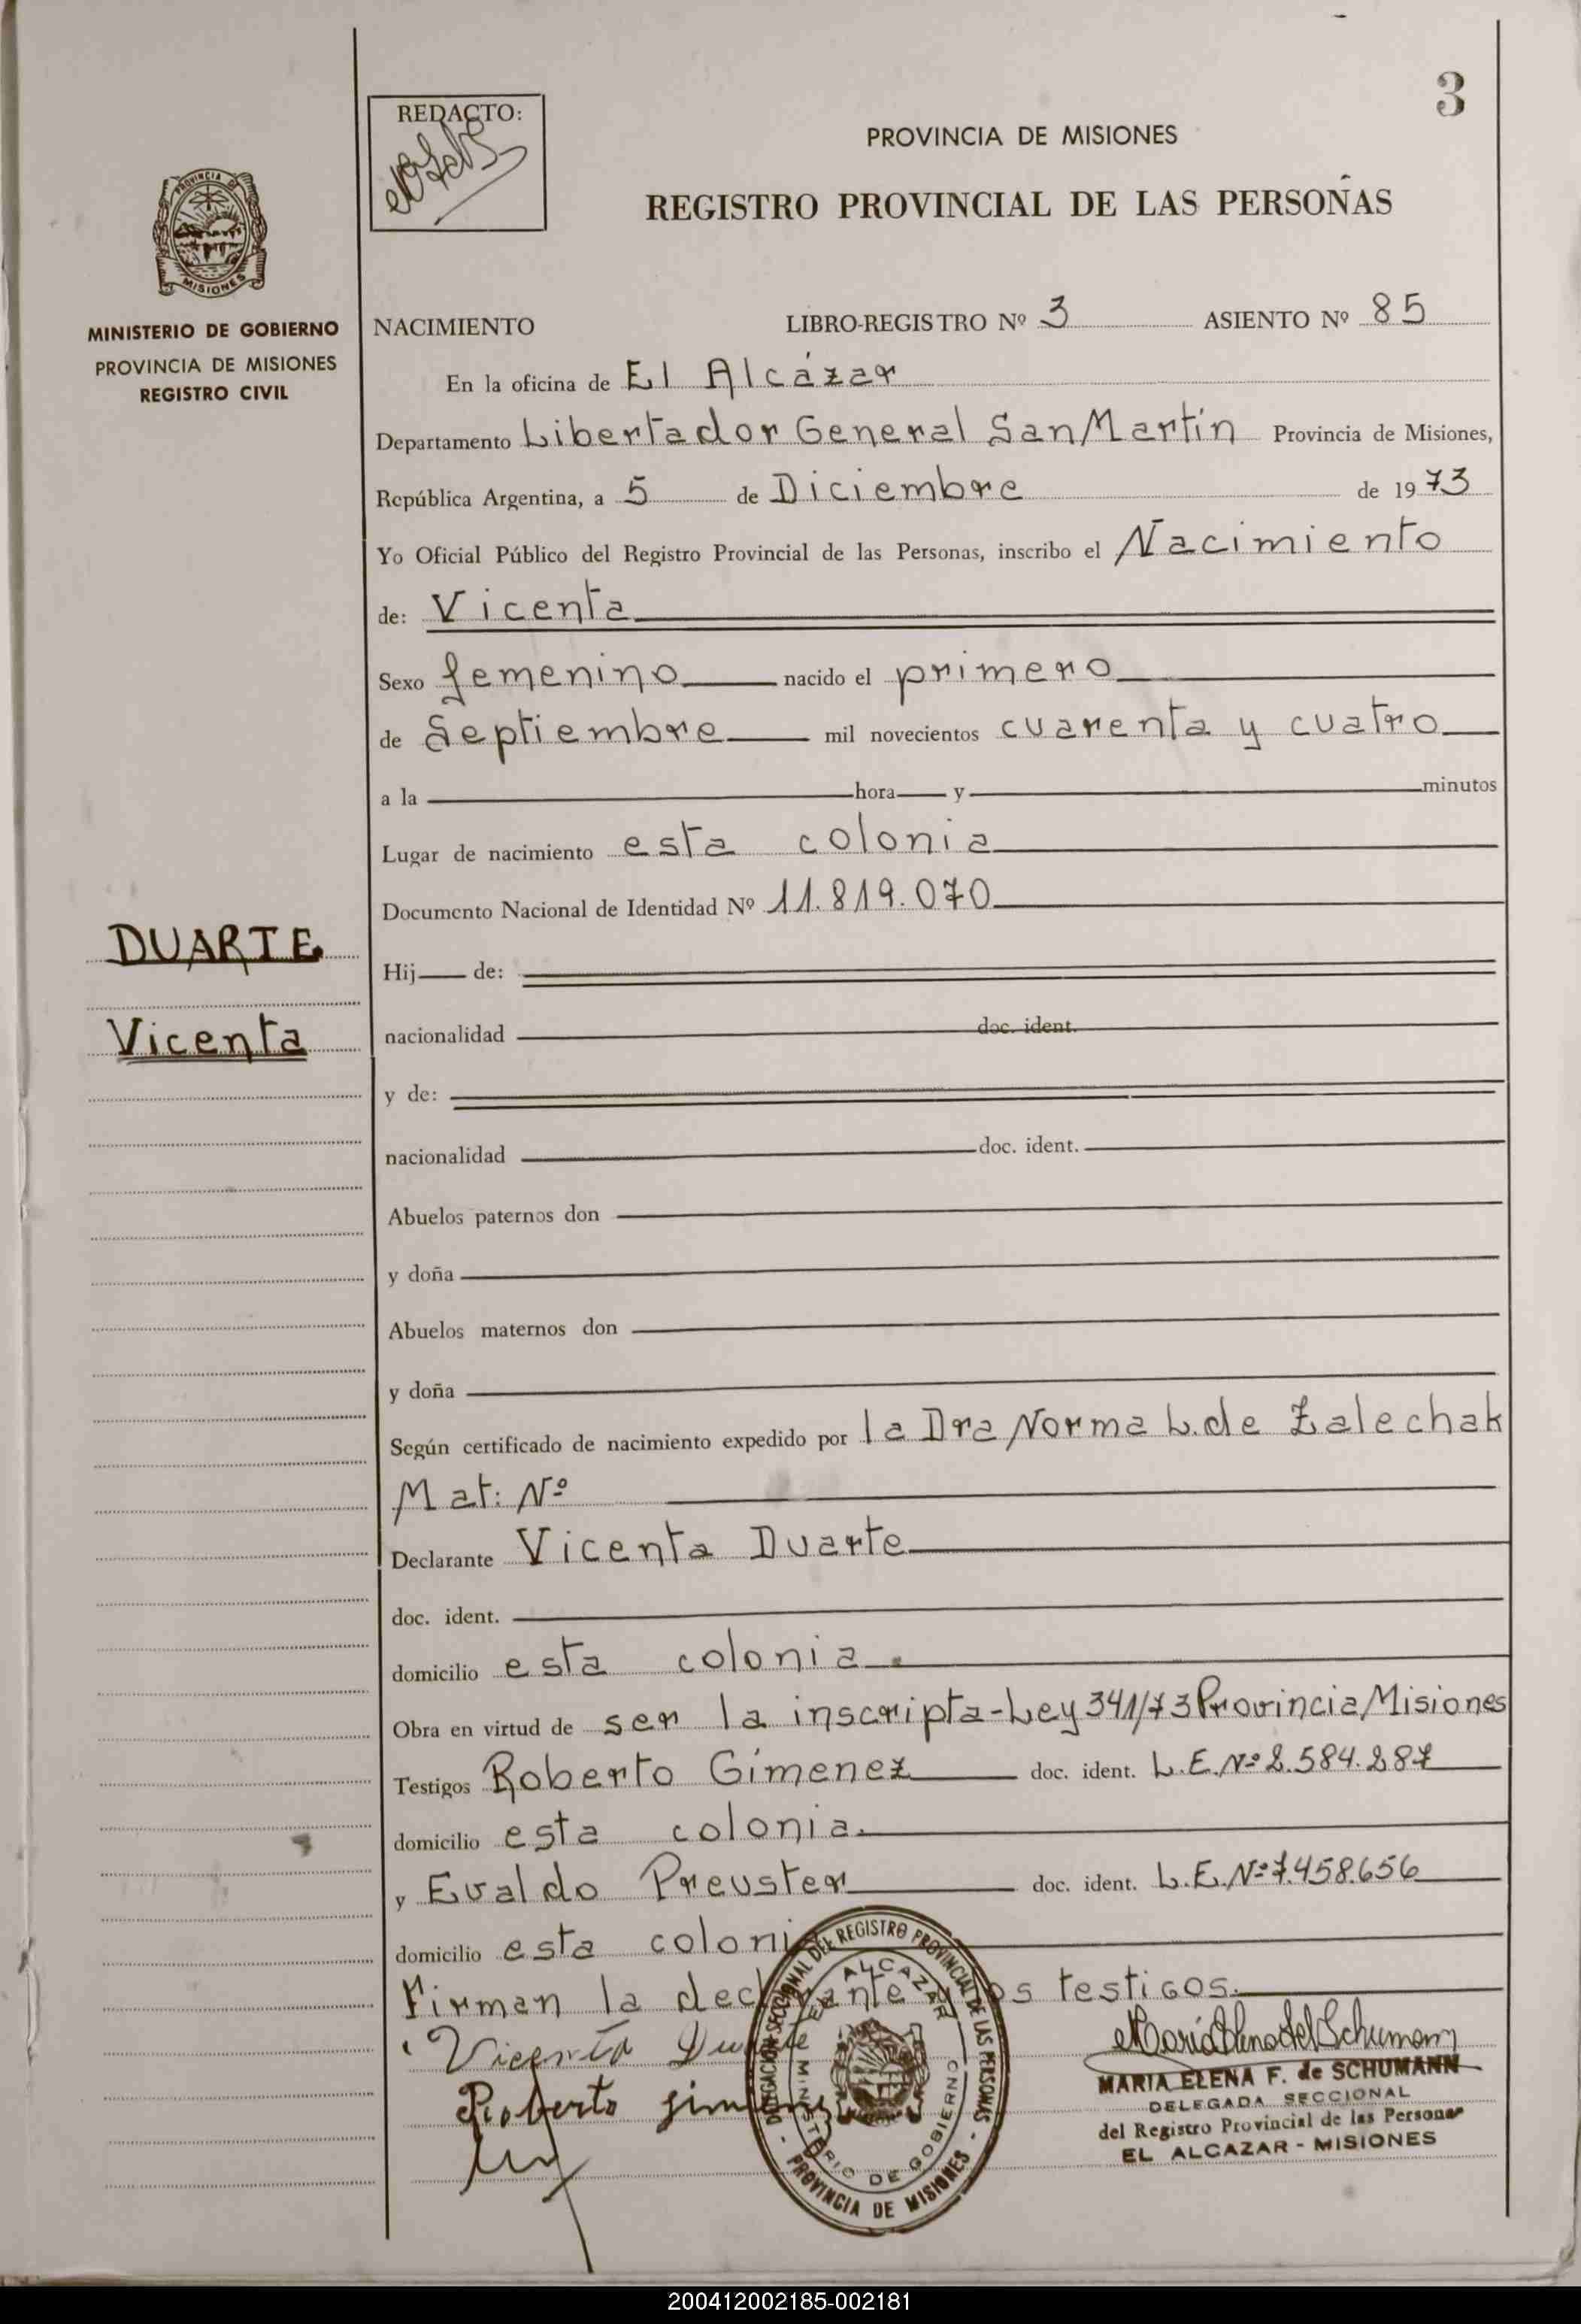 3
REDACTO:
PROVINCIA DE MISIONES
REGISTRO PROVINCIAL DE LAS PERSONAS
PROVINCIA DE
MISIONES
MINISTERIO DE GOBIERNO
PROVINCIA DE MISIONES
REGISTRO CIVIL
NACIMIENTO LIBRO-REGISTRO Nº 3 ASIENTO Nº 85
En la oficina de El Alcázar
Departamento Libertador General San Martín Provincia de Misiones,
República Argentina, a 5 de Diciembre de 1973
Yo Oficial Público del Registro Provincial de las Personas, inscribo el Nacimiento
de: Vicenta
Sexo femenino nacido el primero
de Septiembre mil novecientos cuarenta y cuatro
a la hora y minutos
Lugar de nacimiento esta colonia
Documento Nacional de Identidad Nº 11.819.070
DUARTE
Vicenta
Hij de:
nacionalidad doc. ident.
y de:
nacionalidad doc. ident.
Abuelos paternos don
y doña
Abuelos maternos don
y doña
Según certificado de nacimiento expedido por la Dra Norma L. de Zalechak
Mat: Nº
Declarante Vicenta Duarte
doc. ident.
domicilio esta colonia.
Obra en virtud de ser la inscripta-Ley 341/73 Provincia Misiones
Testigos Roberto Gimenez doc. ident. L.E. Nº 2.584.287
domicilio esta colonia.
y Evaldo Preuster doc. ident. L.E. Nº 7.458.656
domicilio esta coloni
Firman la declarante y los testigos.
Vicenta Duarte
Roberto Jimenez
DELEGACION SECCIONAL DEL REGISTRO PROVINCIAL DE LAS PERSONAS
EL ALCAZAR
MINISTERIO DE GOBIERNO
- PROVINCIA DE MISIONES -
MARIA ELENA F. de SCHUMANN
DELEGADA SECCIONAL
del Registro Provincial de las Personas
EL ALCAZAR - MISIONES
200412002185-002181